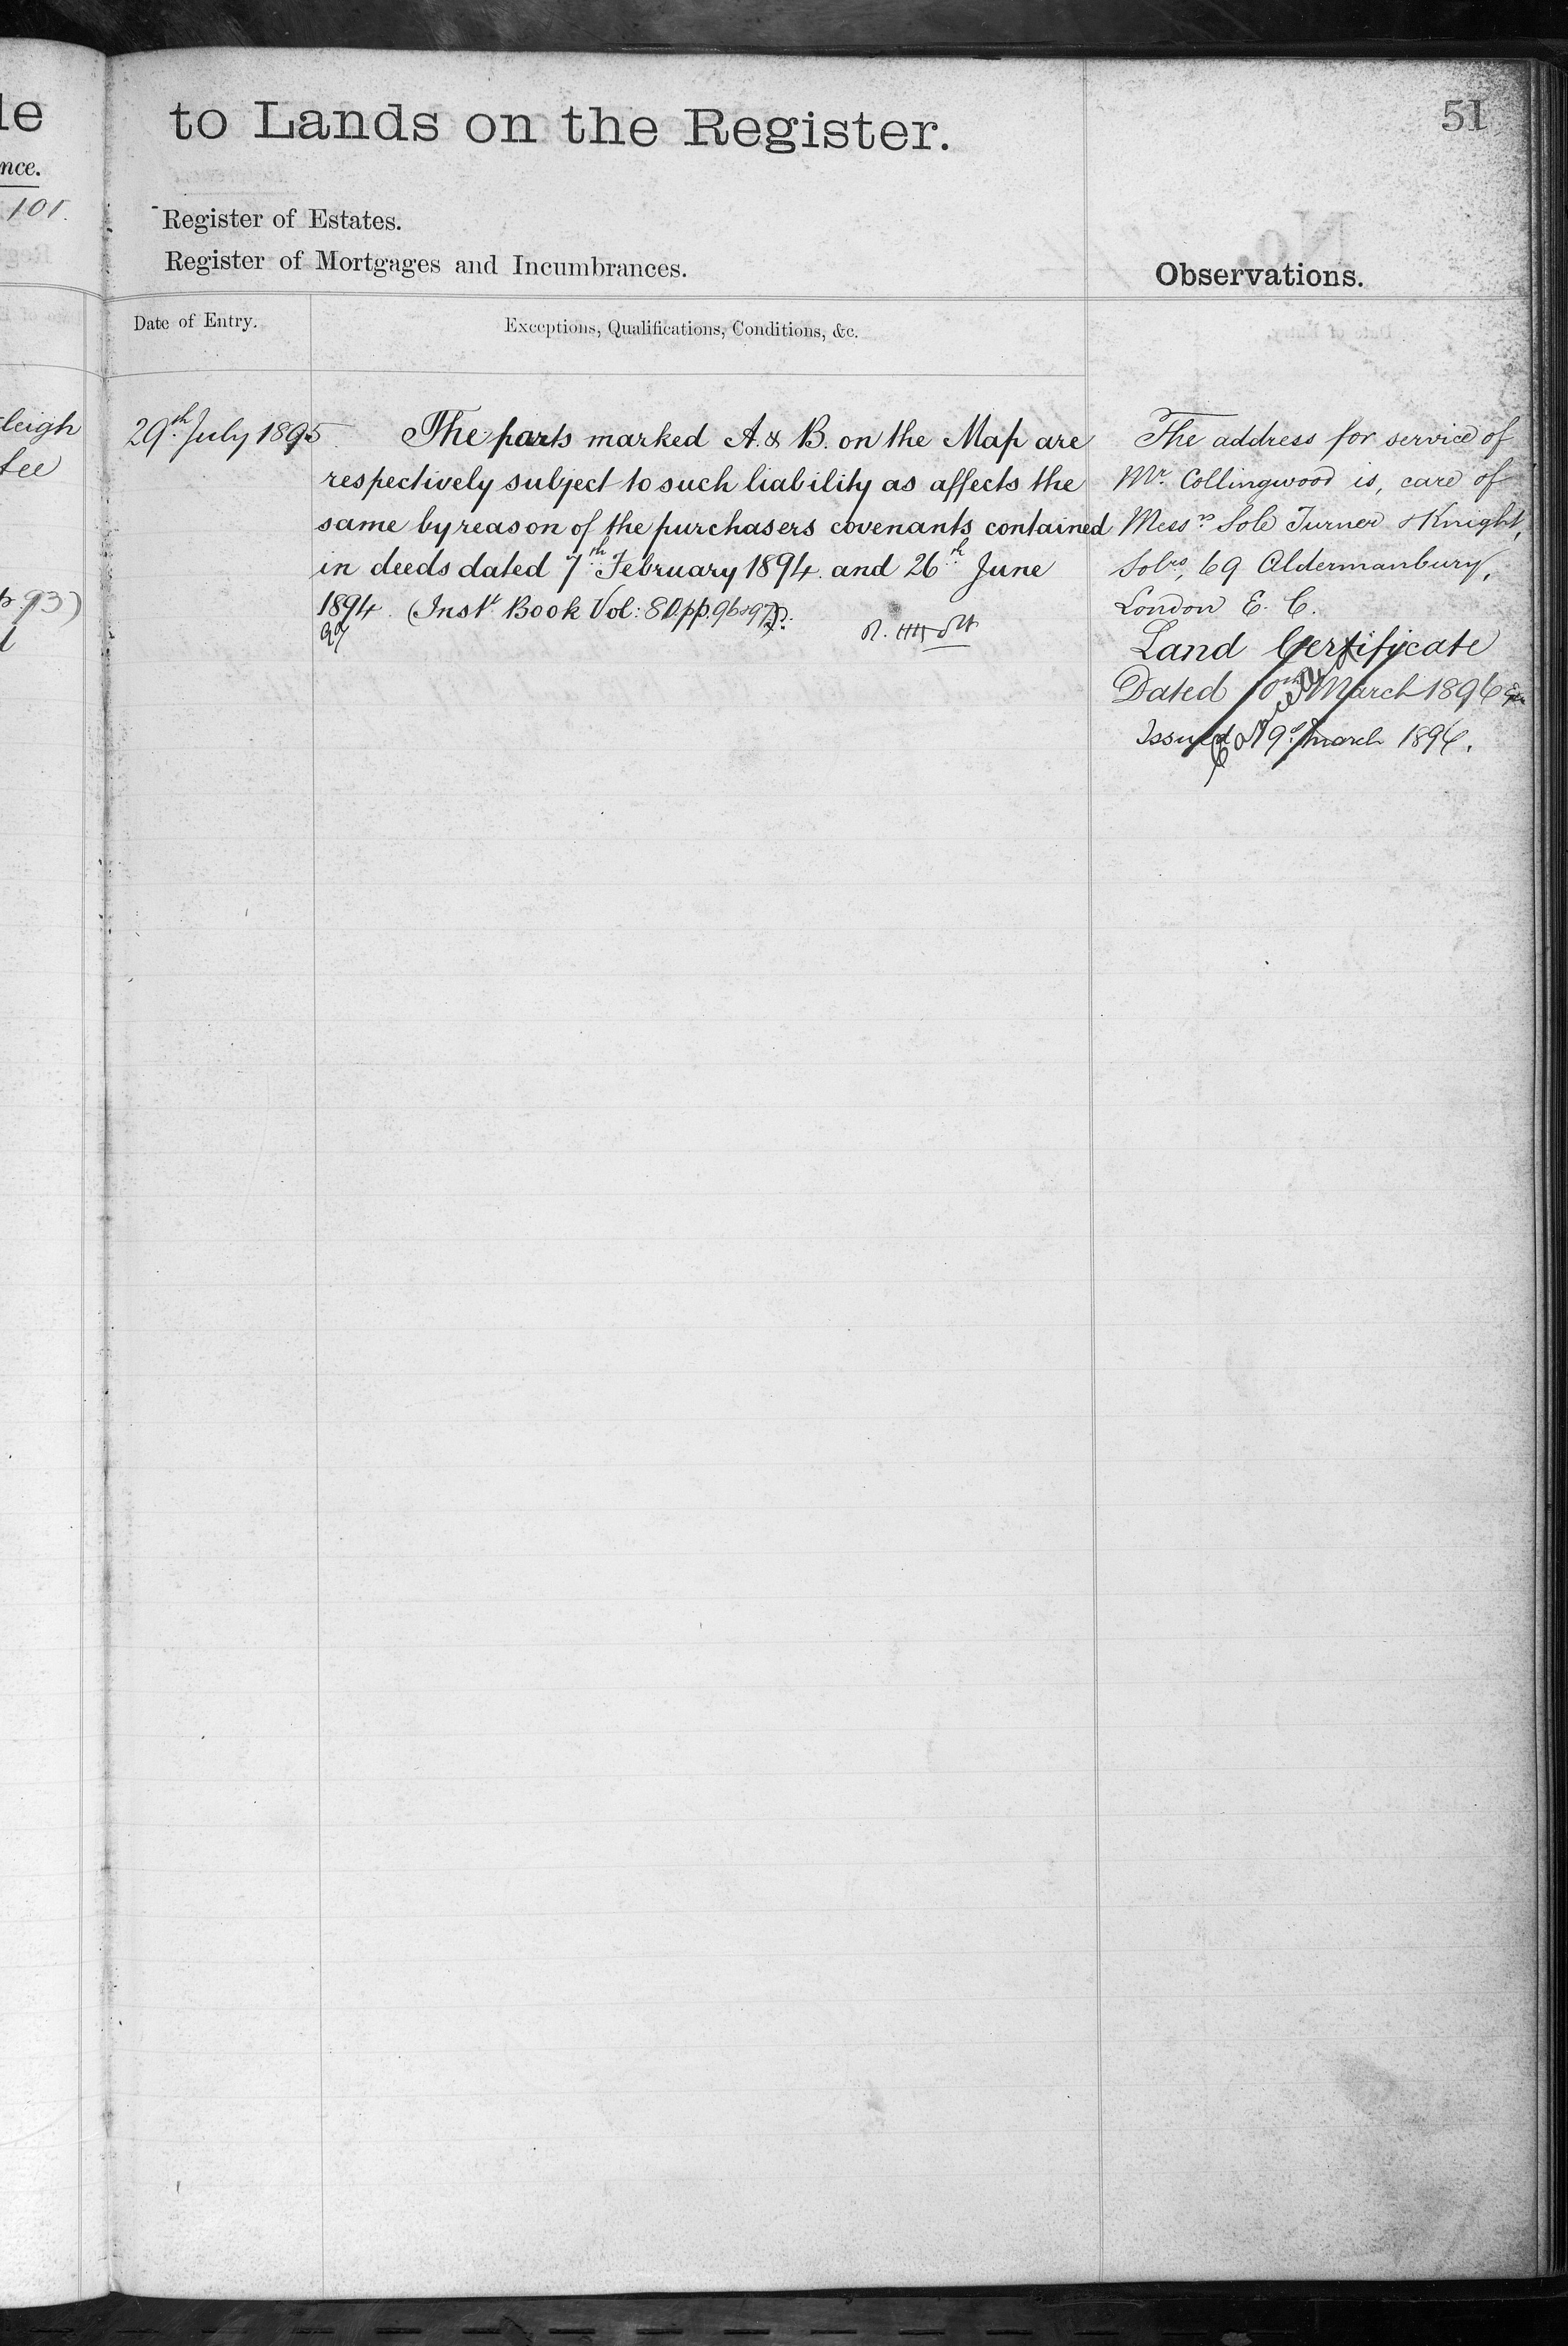 le
nce.
101.
leigh
tee
p. 93)
to Lands on the Register.
51
Register of Estates.
Register of Mortgages and Incumbrances.
Observations.
Date of Entry.
Exceptions, Qualifications, Conditions, &c.
29th July 1895
The parts marked A. & B. on the Map are
respectively subject to such liability as affects the
same by reason of the purchasers covenants contained
in deeds dated 7th February 1894. and 26th June
1894. (Inst. Book Vol: 80. pp. 96 & 97).
The address for service of
Mr. Collingwood is, care of
Messrs Sole Turner & Knight,
Solrs, 69 Aldermanbury,
London E. C.
Land Certificate
Dated 10th March 1896
Issued 19th March 1896.
Cancelled